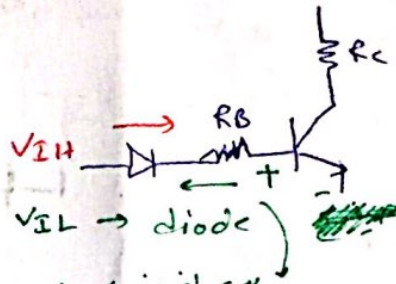 RC
RB
VIH
+
-
VIL → diode